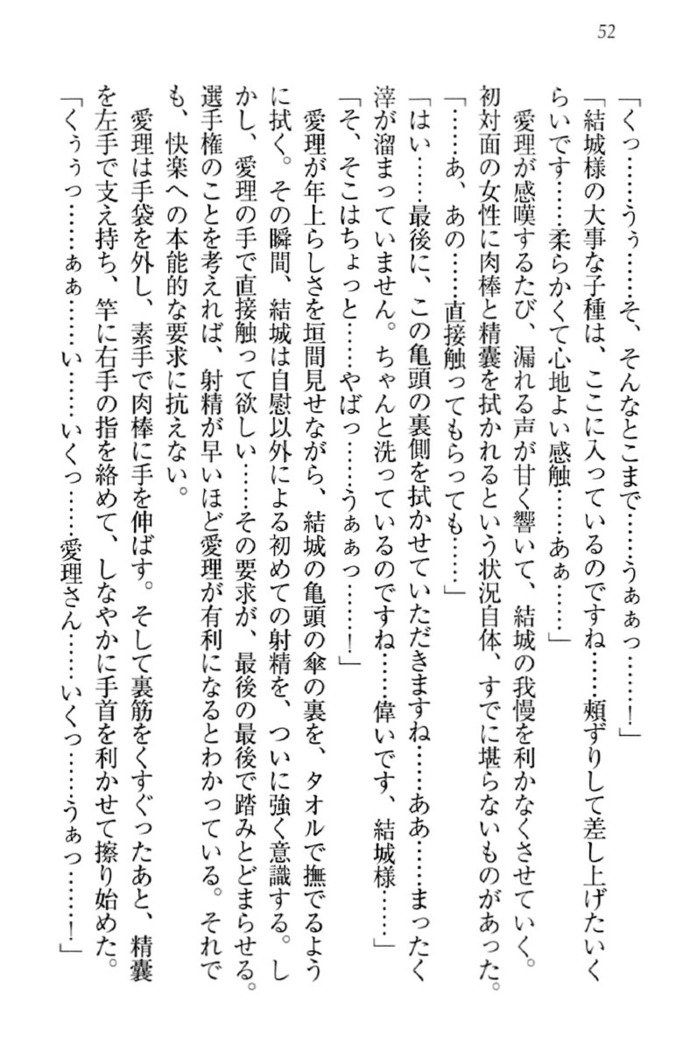 52
「くっ……うぅ……そ、そんなとこまで……うぁぁっ……！」
「結城様の大事な子種は、ここに入っているのですね……頬ずりして差し上げたいく
らいです……柔らかくて心地よい感触……あぁ……」
愛理が感嘆するたび、漏れる声が甘く響いて、結城の我慢を利かなくさせていく。
初対面の女性に肉棒と精嚢を拭かれるという状況自体、すでに堪らないものがあった。
「……あ、あの……直接触ってもらっても……」
「はい……最後に、この亀頭の裏側を拭かせていただきますね……ああ……まったく
滓が溜まっていません。ちゃんと洗っているのですね……偉いです、結城様……」
「そ、そこはちょっと……やばっ……うぁぁっ……！」
愛理が年上らしさを垣間見せながら、結城の亀頭の傘の裏を、タオルで撫でるよう
に拭く。その瞬間、結城は自慰以外による初めての射精を、ついに強く意識する。し
かし、愛理の手で直接触って欲しい……その要求が、最後の最後で踏みとどまらせる。
選手権のことを考えれば、射精が早いほど愛理が有利になるとわかっている。それで
も、快楽への本能的な要求に抗えない。
愛理は手袋を外し、素手で肉棒に手を伸ばす。そして裏筋をくすぐったあと、精嚢
を左手で支え持ち、竿に右手の指を絡めて、しなやかに手首を利かせて擦り始めた。
「くぅぅっ……ぁぁ……い……いくっ……愛理さん……いくっ……うぁっ……！」